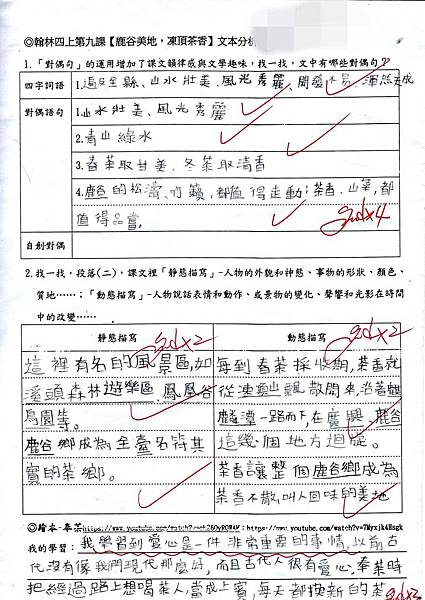 ◎翰林四上第九課【鹿谷美地,凍頂茶香】文本分析
1.「對偶句」的運用增加了課文韻律感與文學趣味,找一找,文中有哪些對偶句?
四字詞語 1.遍及全縣、山水壯美、風光秀麗、開發不易、渾然天成
對偶語句 1.山水壯美、風光秀麗
2.青山綠水
3.春茶取甘美,冬茶取清香
4.鹿谷的松濤、竹籟,都值得走動;茶香、山菜,都
值得品嘗。
gd×4
自創對偶
2.找一找,段落(二),課文裡「靜態描寫」-人物的外貌和神態、事物的形狀、顏色、
質地……;「動態描寫」-人物說話表情和動作、或景物的變化、聲響和光影在時間
中的改變……
靜態描寫 gd×2 動態描寫 gd×2
這裡有名的風景區,如
溪頭森林遊樂區、鳳凰谷
鳥園等。
鹿谷鄉成為全臺名符其
實的茶鄉。
每到春茶採收期,茶香就
從凍頂山飄散開來,沿著麒
麟潭一路而下,在廣興、鹿谷
這幾個地方迴旋。
茶香讓整個鹿谷鄉成為
茶香不散,叫人回味的美地
◎鹿谷-奉茶
我的學習:我學習到愛心是一件非常重要的事情,以前古
代沒有像我們現代那麼好,而且古代人很有愛心,奉茶時
把經過路上想喝茶人,當成上賓,每天都換新的茶
gd×3